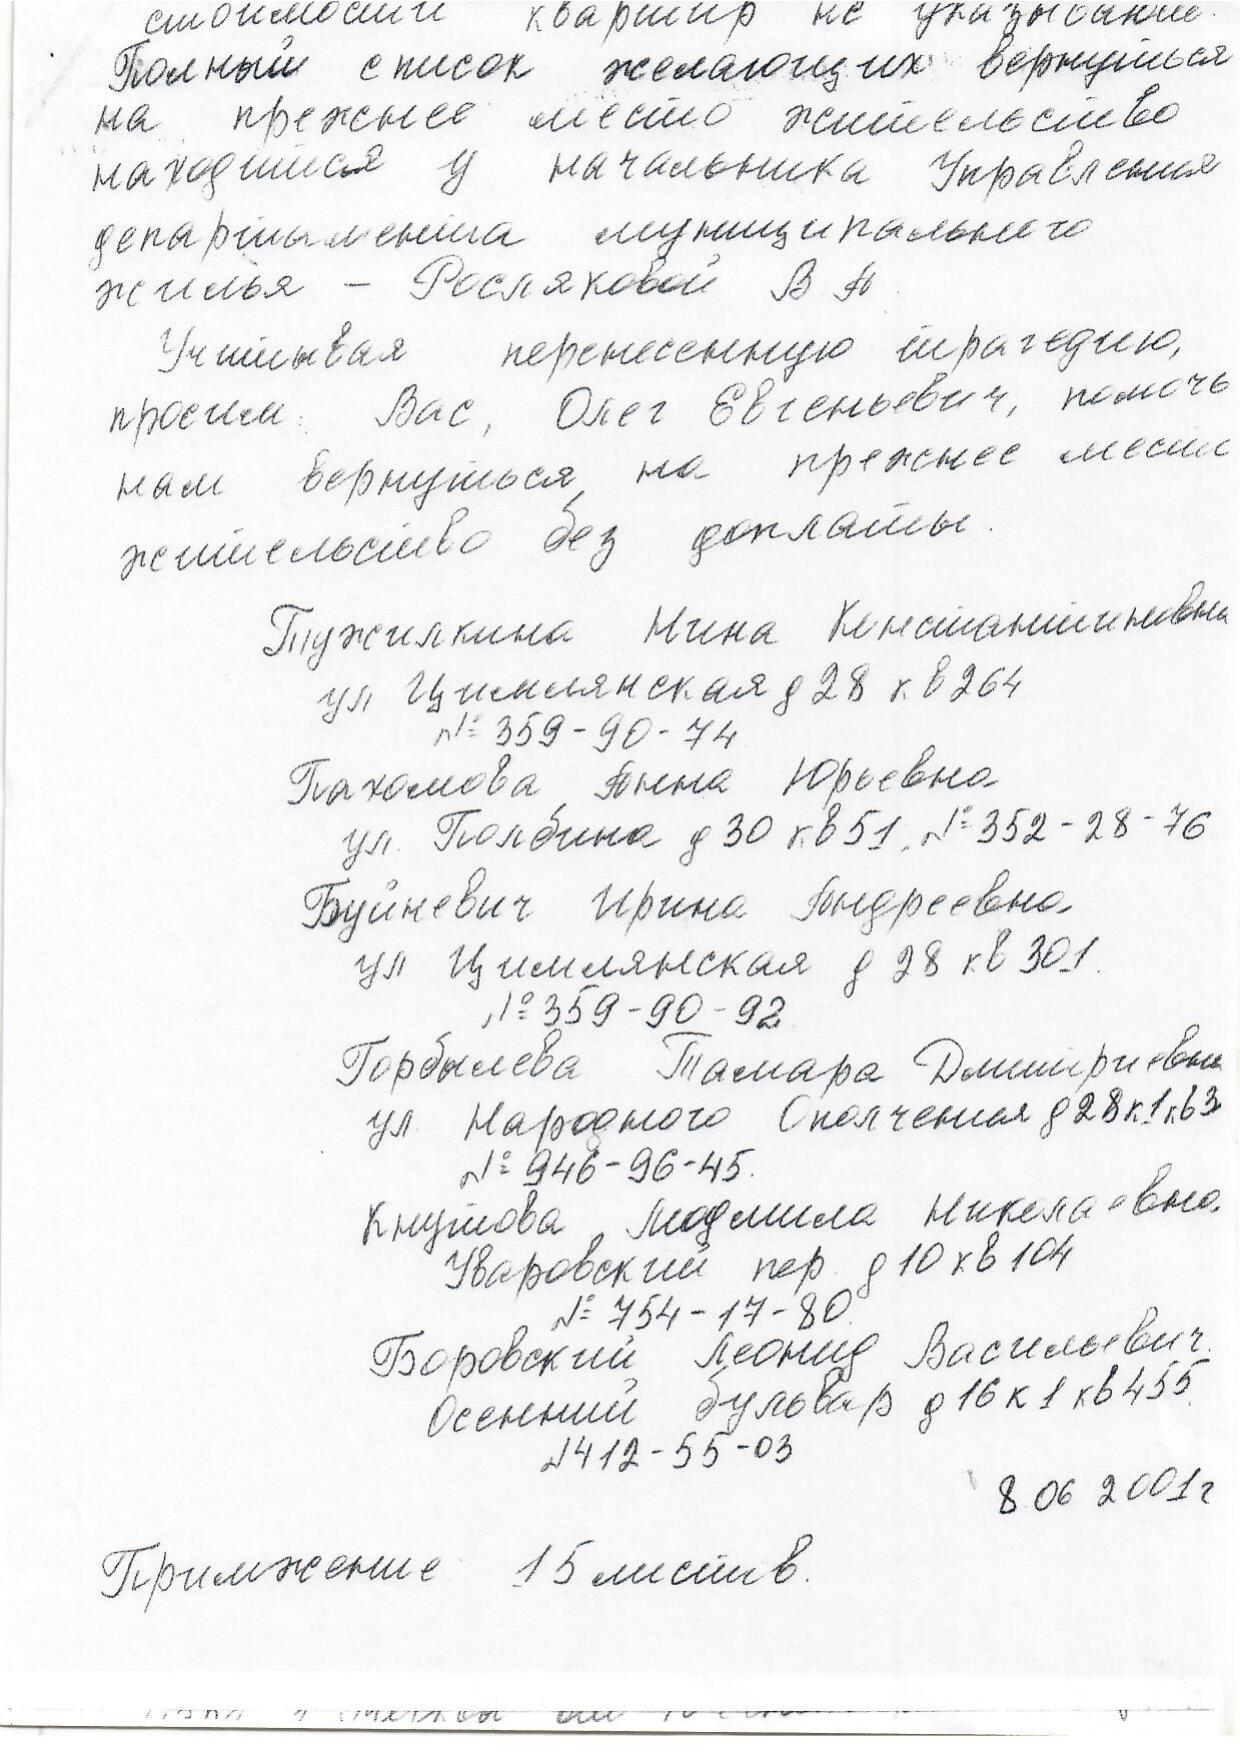 стоимости квартир не указывание.
Полный список желающих вернуться
на прежнее место жительство
находится у начальника Управления
департамента муниципального
жилья - Росляковой В А.
Учитывая перенесенную трагедию,
просим Вас, Олег Евгеньевич, помочь
нам вернуться на прежнее место
жительство без доплаты.
Тужилкина Нина Константиновна
ул Цимлянская д 28 кв 264
№ 359-90-74
Пахомова Анна Юрьевна
ул. Полбина д 30 кв 51, № 352-28-76
Буйневич Ирина Андреевна
ул Цимлянская д 28 кв 301.
№ 359-90-92
Горбылева Тамара Дмитриевна
ул Народного Ополчения д 28 к 1 кв 3
№ 946-96-45.
Кнутова Людмила Николаевна
Уваровский пер д 10 кв 104
№ 754-17-80.
Боровский Леонид Васильевич.
Осенний бульвар д 16 к 1 кв 455.
N 412-55-03
8 06 2001 г
Приложение 15 листов.